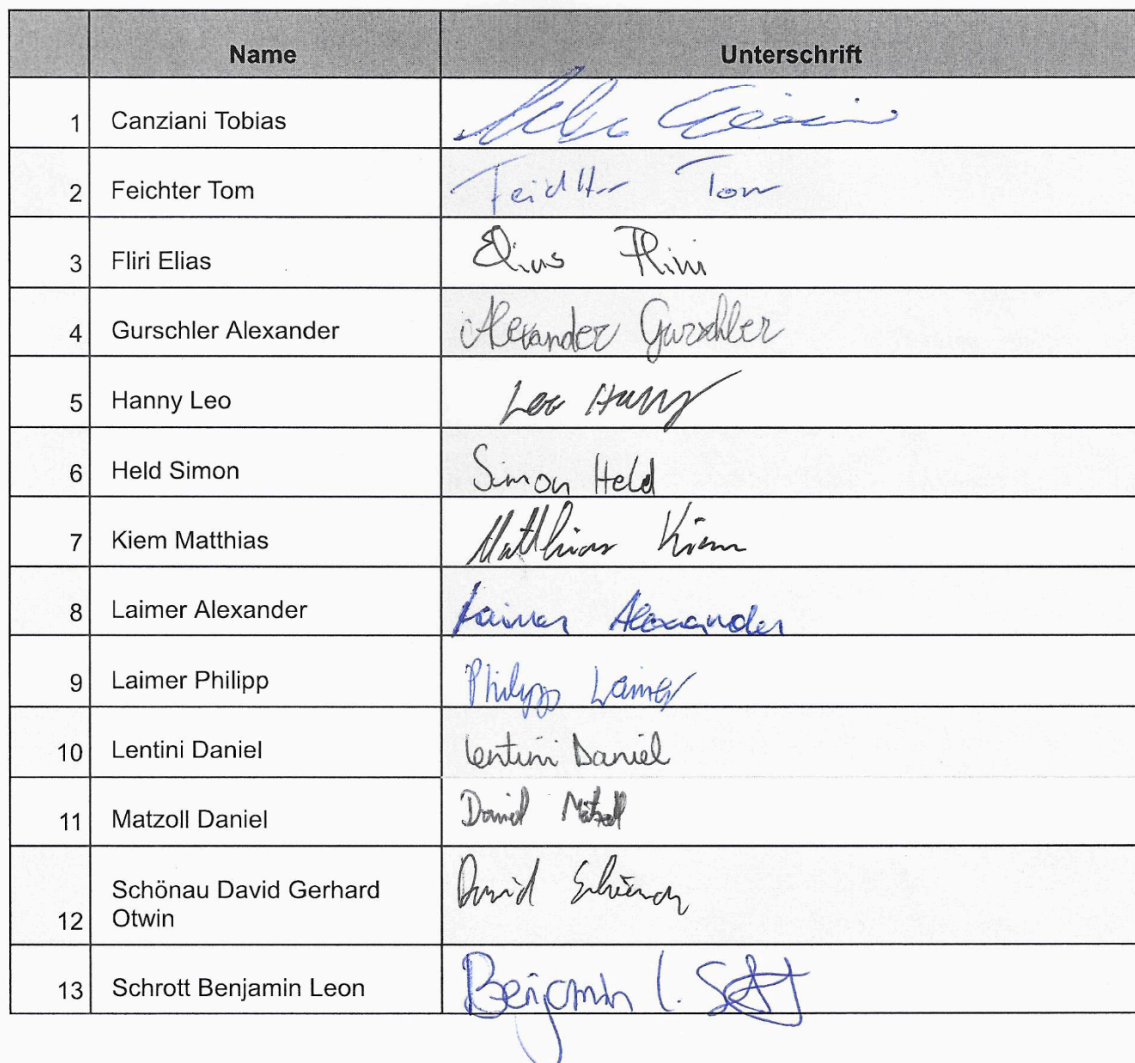 Name Unterschrift
1 Canziani Tobias
2 Feichter Tom Feichter Tom
3 Fliri Elias Elias Fliri
4 Gurschler Alexander Alexander Gurschler
5 Hanny Leo Leo Hanny
6 Held Simon Simon Held
7 Kiem Matthias Matthias Kiem
8 Laimer Alexander Laimer Alexander
9 Laimer Philipp Philipp Laimer
10 Lentini Daniel Lentini Daniel
11 Matzoll Daniel Daniel Matzoll
Schönau David Gerhard David Schönau
12 Otwin
13 Schrott Benjamin Leon Benjamin L.